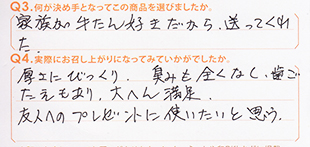 Q3.何が決め手となってこの商品を選びましたか。
家族が牛たん好きだから、送ってくれ
た.
Q4.実際にお召し上がりになってみていかがでしたか。
厚さにびっくり. 臭みも全くなく、歯ご
たえもあり、大へん満足.
友人へのプレゼントに使いたいと思う.